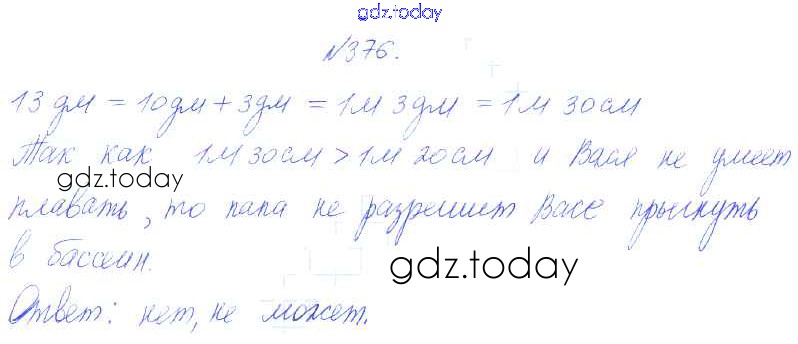 gdz.today
№376.
13 дм = 10дм + 3дм = 1м 3дм = 1м 30см
Так как 1м 30см > 1м 20см и Вася не умеет
gdz.today
плавать, то папа не разрешит Васе прыгнуть
в бассеин.
gdz.today
Ответ: нет, не может.